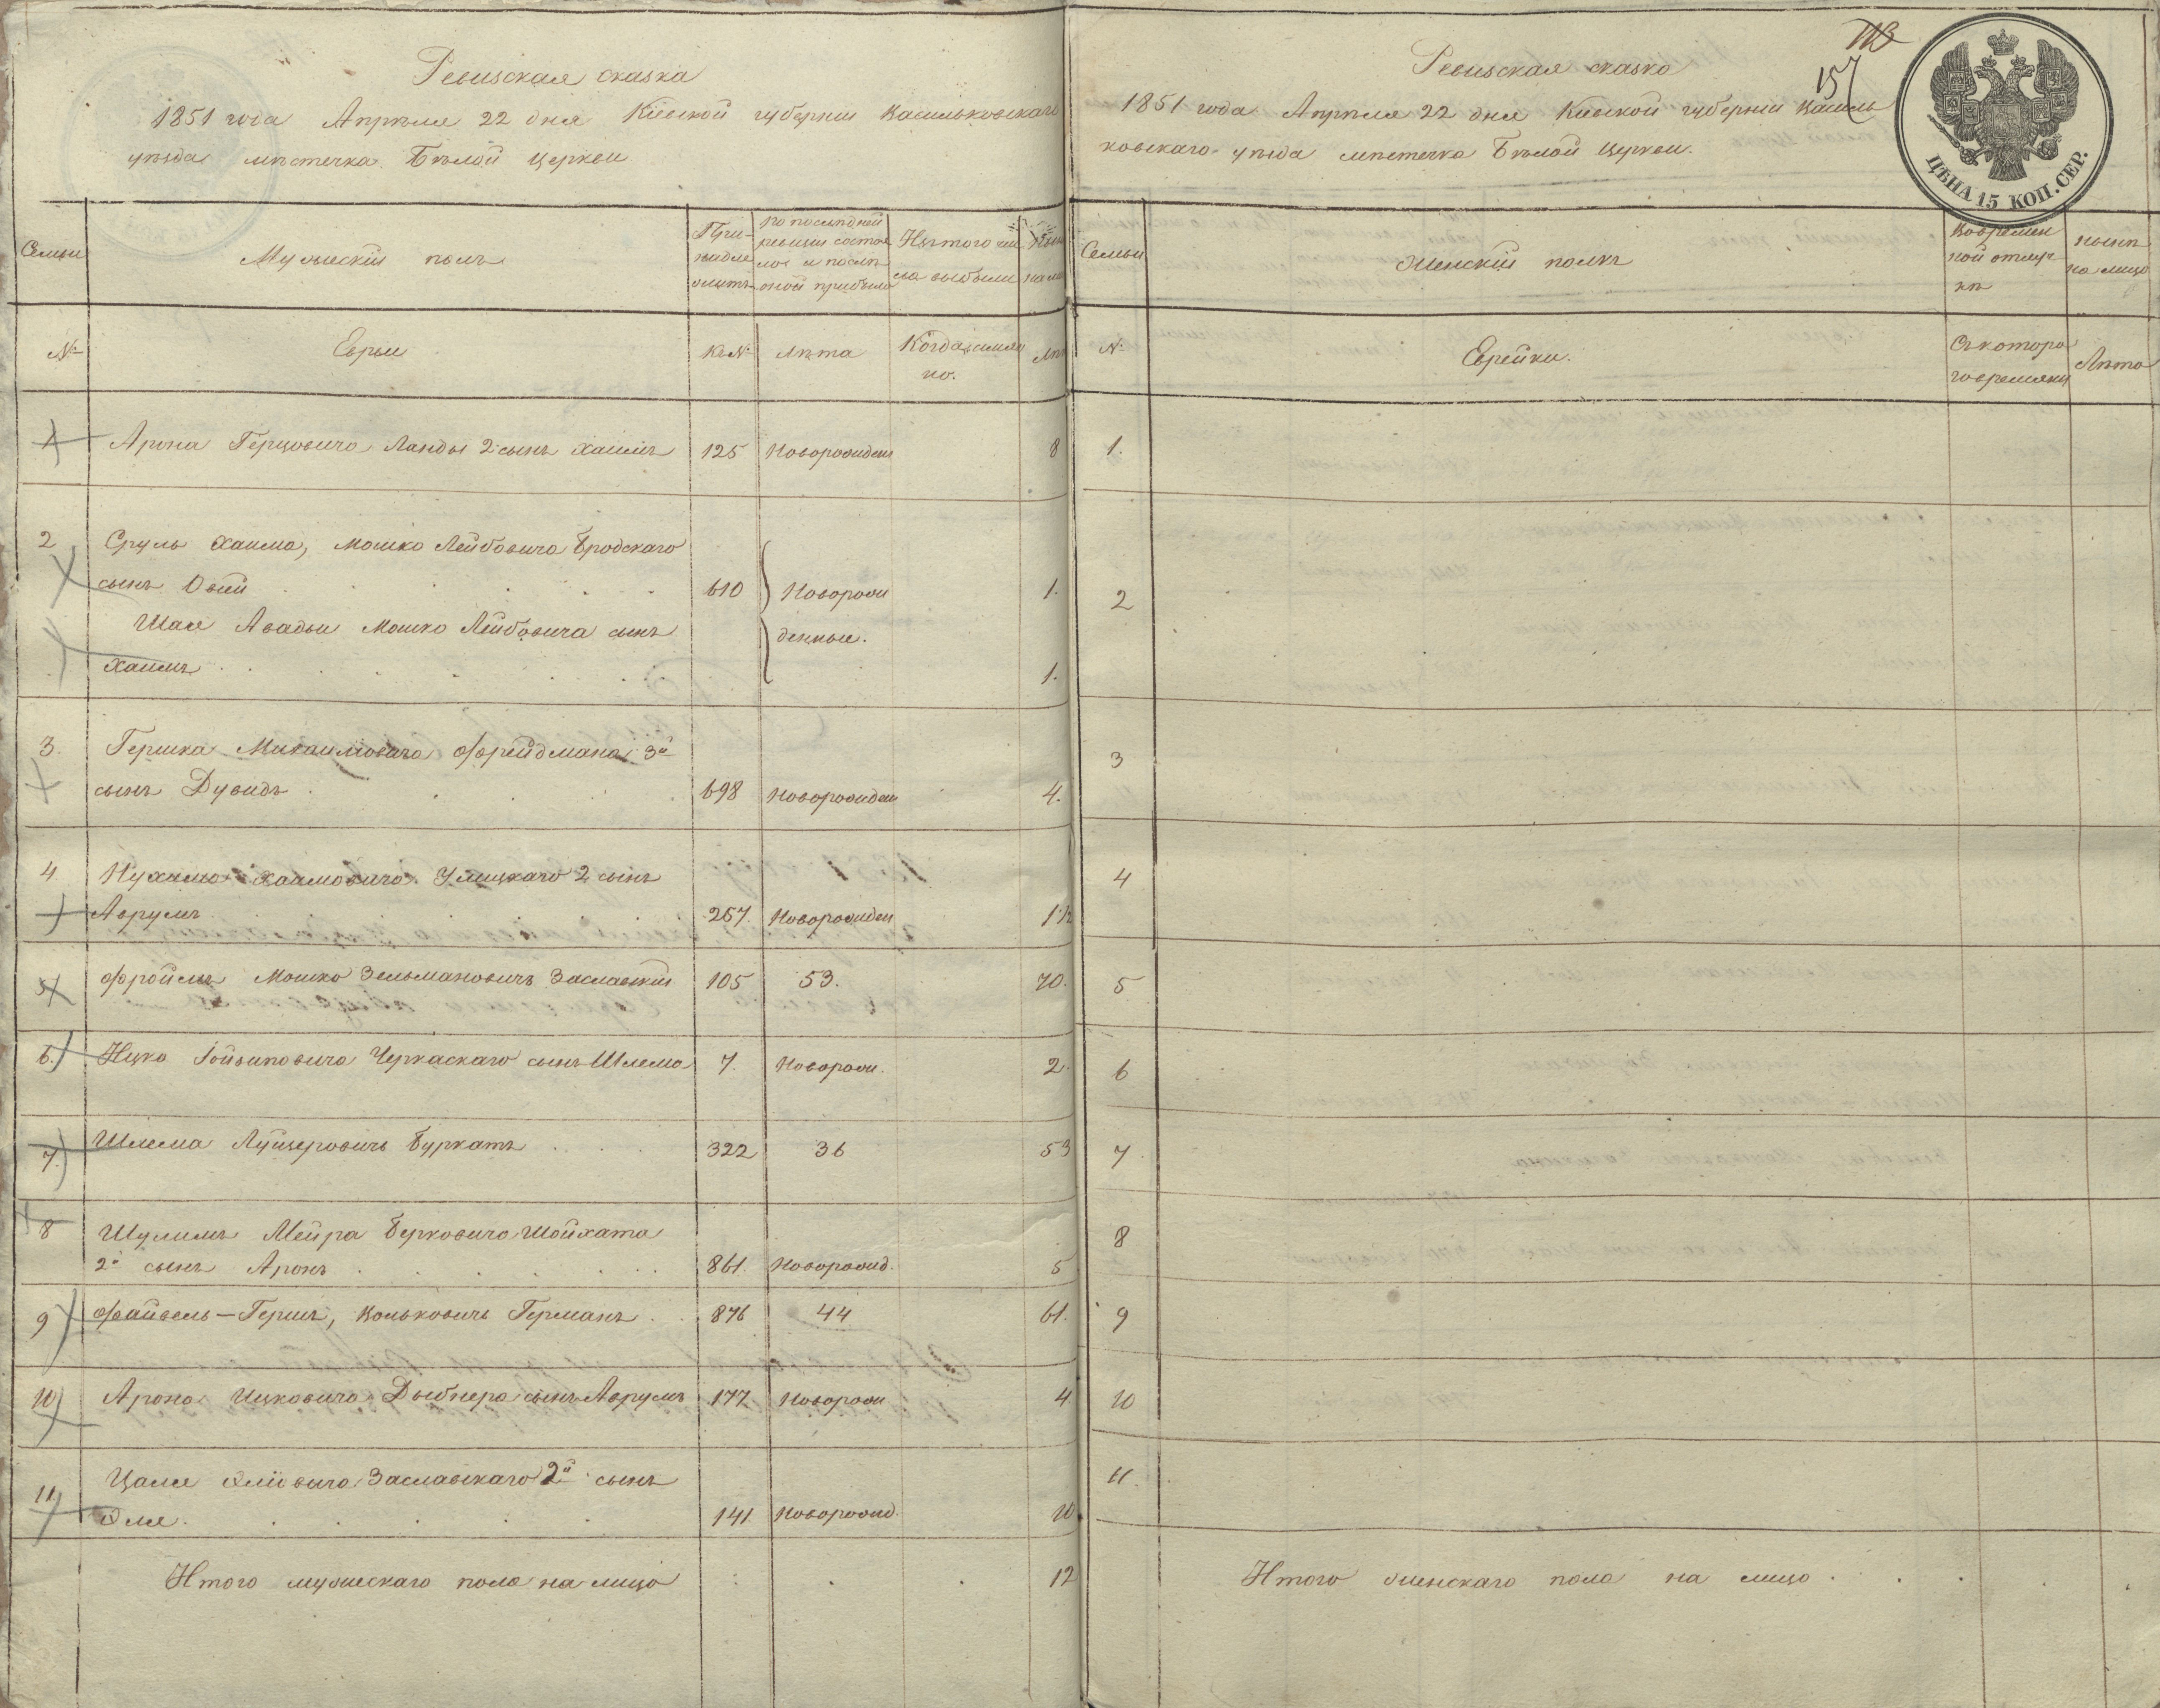 Ревизская сказка
1851 года Апрѣля 22 дня Кіевской губерніи Васильковскаго
уѣзда мѣстечка Бѣлой Церкви
Семьи
Мужескій полъ
При-
надле
житъ
По послѣдней
ревизіи состоя
лоѣ и послѣ
оной прибыло
Изъ того чи
сла выбыли
Нынѣ
на ли
№
Евреи
К. №
Лѣта
Когда имян
но.
Лѣт
1
Арона Герцовича Ланды 2 сынъ Хаимъ
125
Новорожден
8
2
Сруль Хаима, Мошко Лейбовича Бродскаго
сынъ Овсій
610
Новорож
1.
Шае Авадьи Мошко Лейбовича сынъ
денные.
Хаимъ
1.
3.
Гершка Михаиловича Фрейдмана 3й
сынъ Дувидъ
698
Новорожден
4.
4
Нухима Хаимовича Улицкаго 2 сынъ
Аврумъ
257.
Новорожден
1½
5
Фроимъ Мошко Зельмановичъ Заславскій
105
53.
70.
6.
Ицко Гойвиховича Черкаскаго сынъ Шлема
7.
Новорож.
2.
7
Шлема Луцеровичъ Буркатъ
322
36
53
8
Шулимъ Мейра Берковича Шойхата
2й сынъ Аронъ
861.
Новорожд.
5
9
Файвель-Гершъ, Вольковичъ Германъ
876
44
61.
10
Арона Ицковича Дыбнера сынъ Аврумъ
177
Новорож
4
11
Цале Элiовича Заславскаго 2й сынъ
Эле.
141
Новорожд.
10
Итого мужескаго пола на лицо
12
113
157
Ревизская сказка
1851 года Апрѣля 22 дня Кіевской губерніи Василь
ковскаго уѣзда мѣстечка Бѣлой Церкви.
ЦѢНА 15 КОП. СЕР.
Семьи
Женскій полъ
Во времен
ной отлуч
кѣ
нынѣ
на лицо
№
Еврейки.
Съ которо
го времяни
Лѣта
1.
2
3
4
5
6
7
8
9
10
11.
Итого женскаго пола на лицо